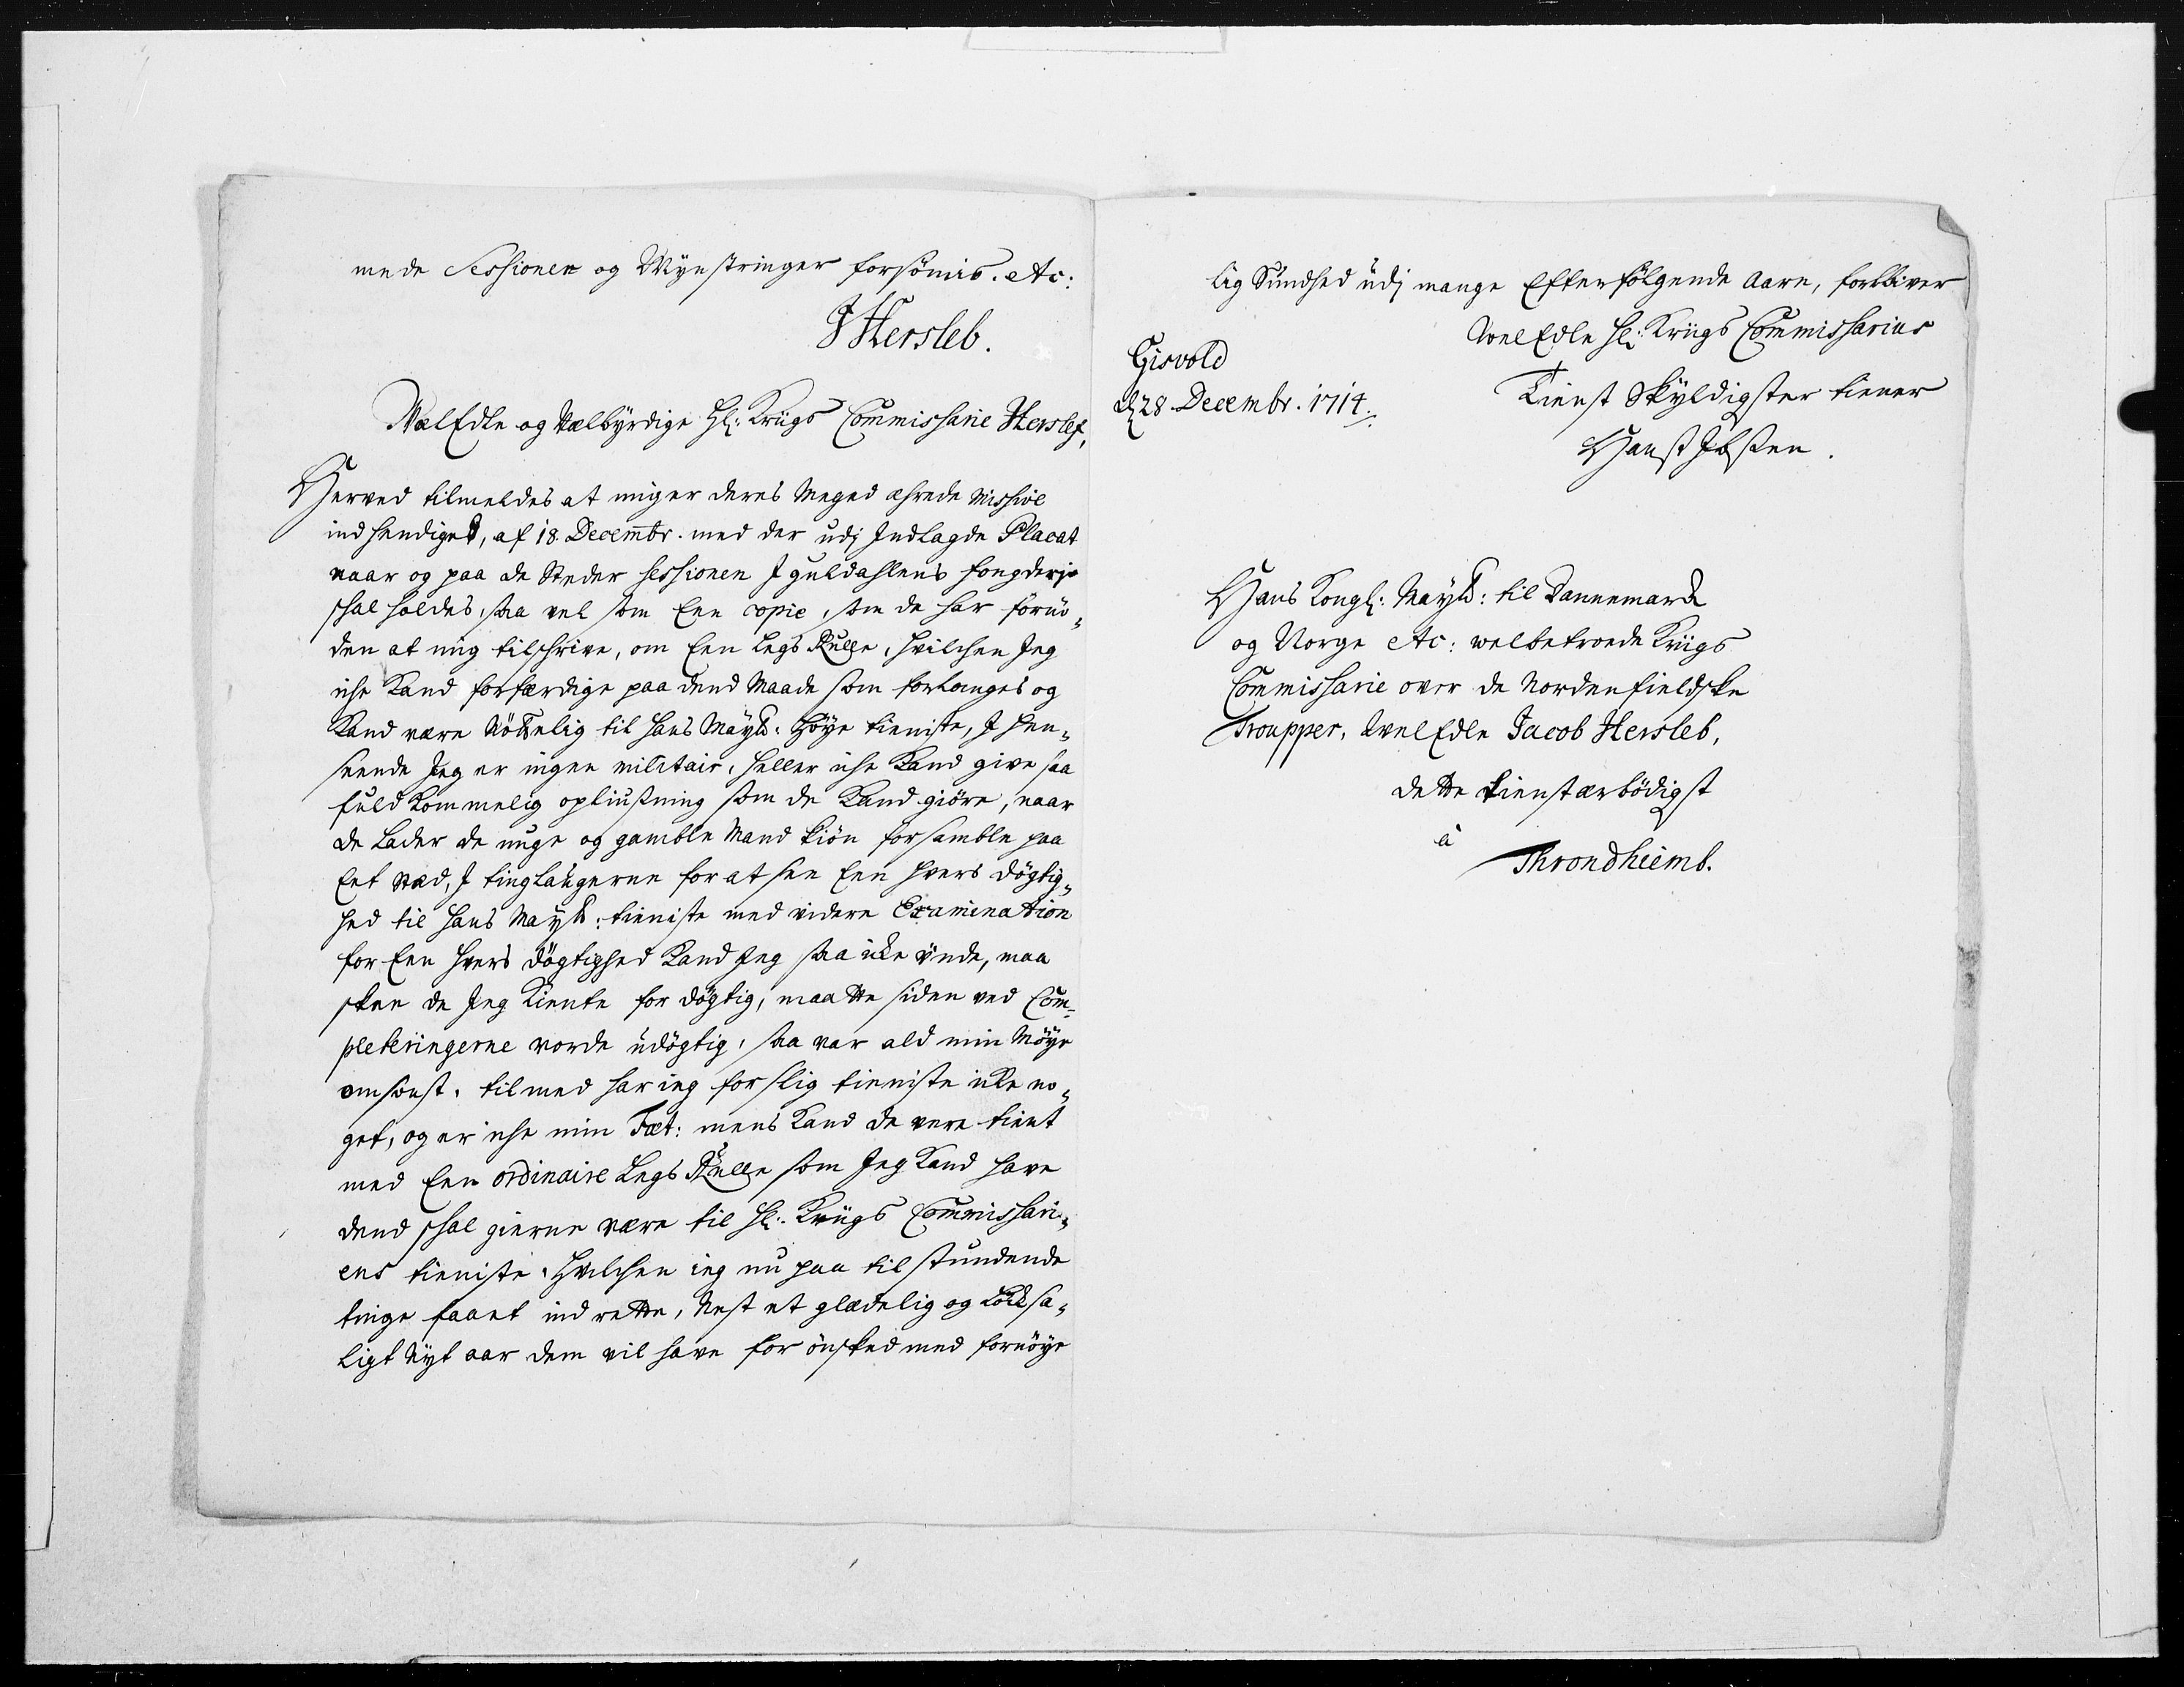 mede Sessioner og Mynstringer forsömis. etc:
J Hersleb.
WelEdle og Velbyrdige Hr: Kriigs Commissarie Herslef,
Herved tilmeldes at mig er deres Meged ærede Missive
indhendiget, af 18 Decembr. med der udj Indlagde Placat
naar og paa de Steder Sessionen J Guldahlens fougderje
schal holdes, saa vel som Een copie, som de har fornö„
den at mig tilschrive, om Een Legs Rulle, hvilchen Jeg
iche Kand forfærdige paa dend Maade som forlanges og
Kand være Nöttelig til hans Mayts: höye tieniste, J hen„
seende Jeg er ingen militair, heller iche Kand give saa
fuldkommelig opliusning som de Kand giöre, naar
de Lader de unge og gamble Mand kiön forsamble paa
Eet stæd, J tinglaugerne for at see Een hvers dögtig„
hed til hans Mayts: tieniste med videre Examination
for Een hvers dögtighed Kand Jeg saa icke vinde, maa
skee de Jeg Kiente for dögtig, maatte siden ved Com„
pleteringerne vorde udögtig, saa var ald min Möye
omsonst. tilmed har ieg for slig tieniste icke no„
get, og er iche min Fæt: mens Kand de vere tient
med Een ordinaire Legs Rulle som Jeg Kand have
dend schal gierne være til Hr: Kriigs Commissari„
ens tieniste, hvilchen ieg nu paa tilstundende
tinge faaet ind rette, Nest et glædelig og Löcksa„
ligt Nyt aar dem vil have for önsked med fornöye
lig Sundhed udj mange Efterfölgende Aare, forbliver
WelEdle Hr: Kriigs Commissarius
Gisvold
d 28 Decembr. 1714.
Tienst Skyldigster tiener
Hanss Ibsen.
Hans Kongl: Mayts: til Dannemarck
og Norge etc: welbetroede Kriigs
Commissarie over de Nordenfieldske
Troupper, WelEdle Jacob Hersleb,
dette tienstærbödigst
à
Throndhiemb.